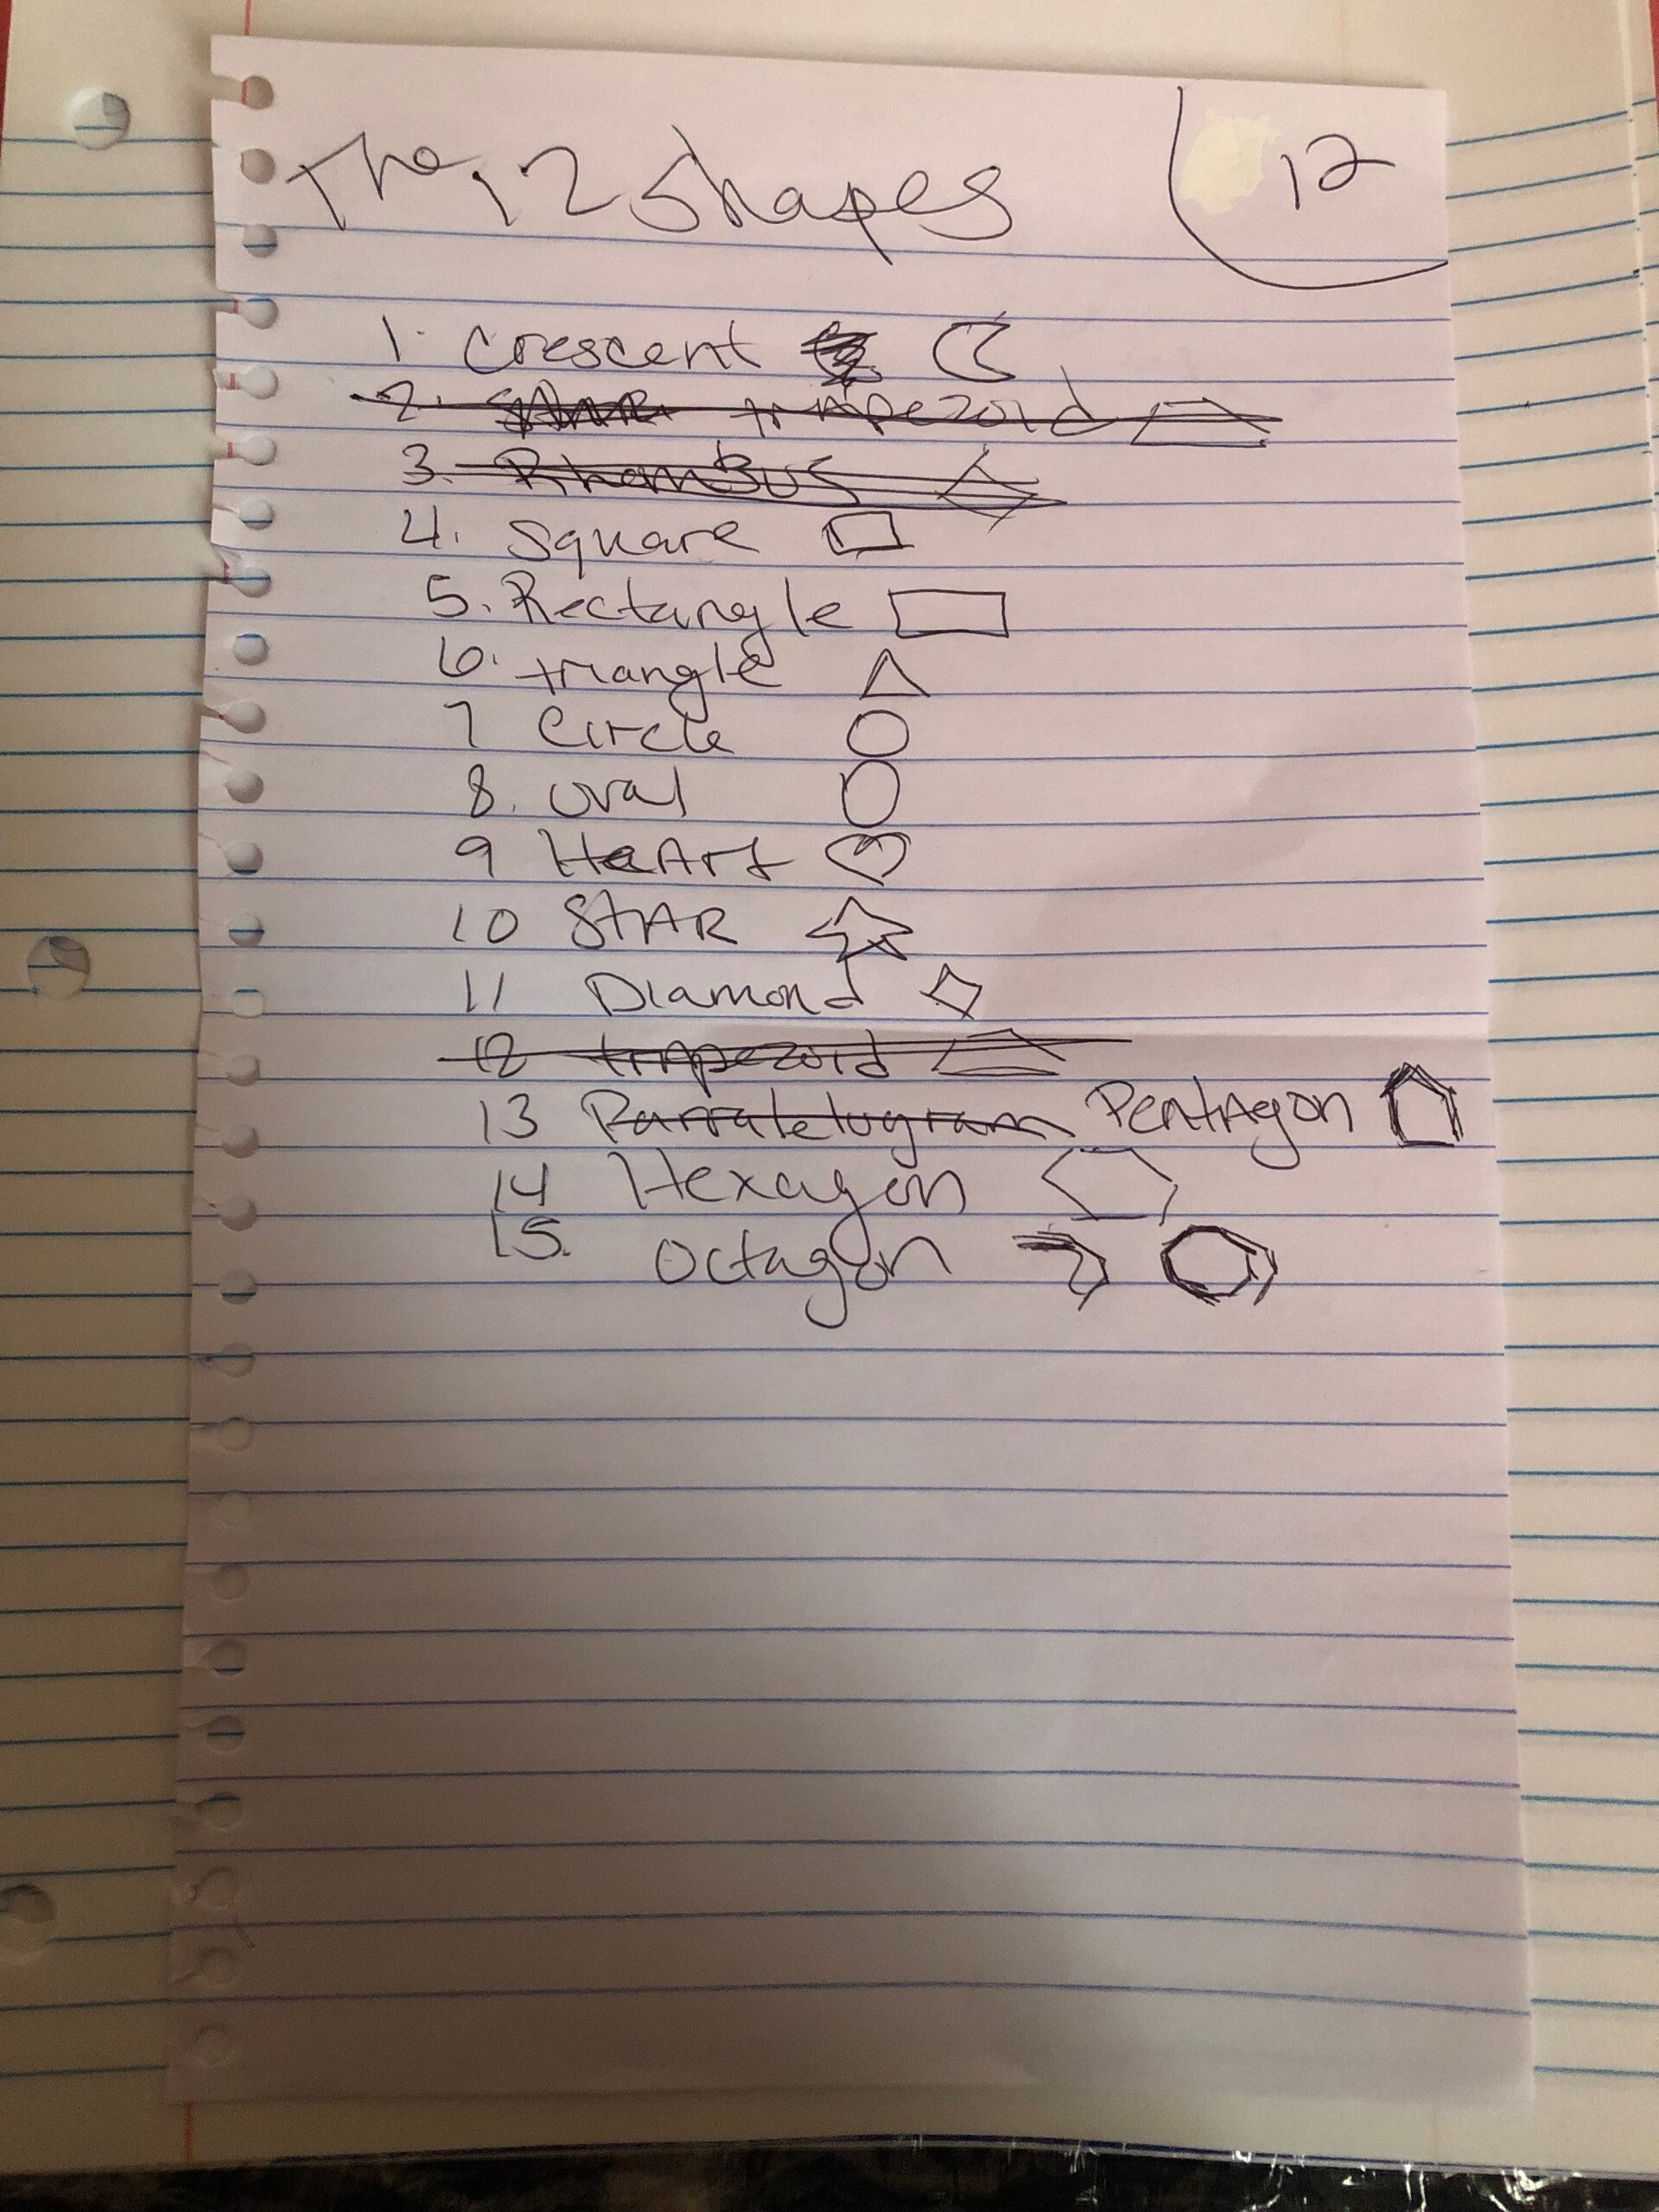 The 12 Shapes
12
1. Crescent
2. trapezoid
3. RhomBus
4. Square
5. Rectangle
6. triangle
7 Circle
8. oval
9 HeArt
10 StAR
11 Diamond
12 trapezoid
13 Parralelogram PentAgon
14 Hexagon
15. Octagon